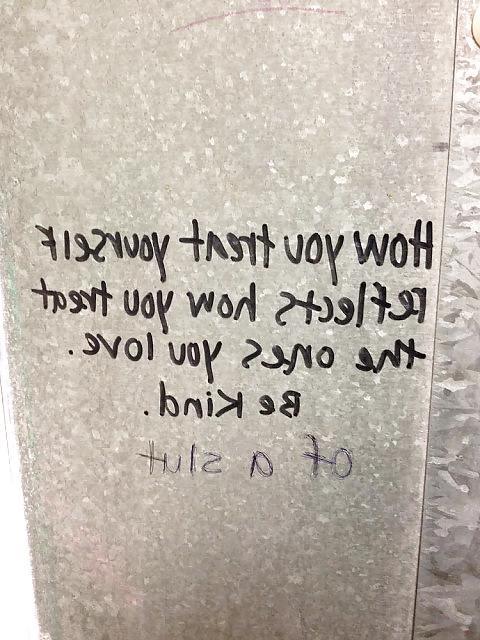 How you treat yourself
reflects how you treat
the ones you love.
Be Kind.
of a slut